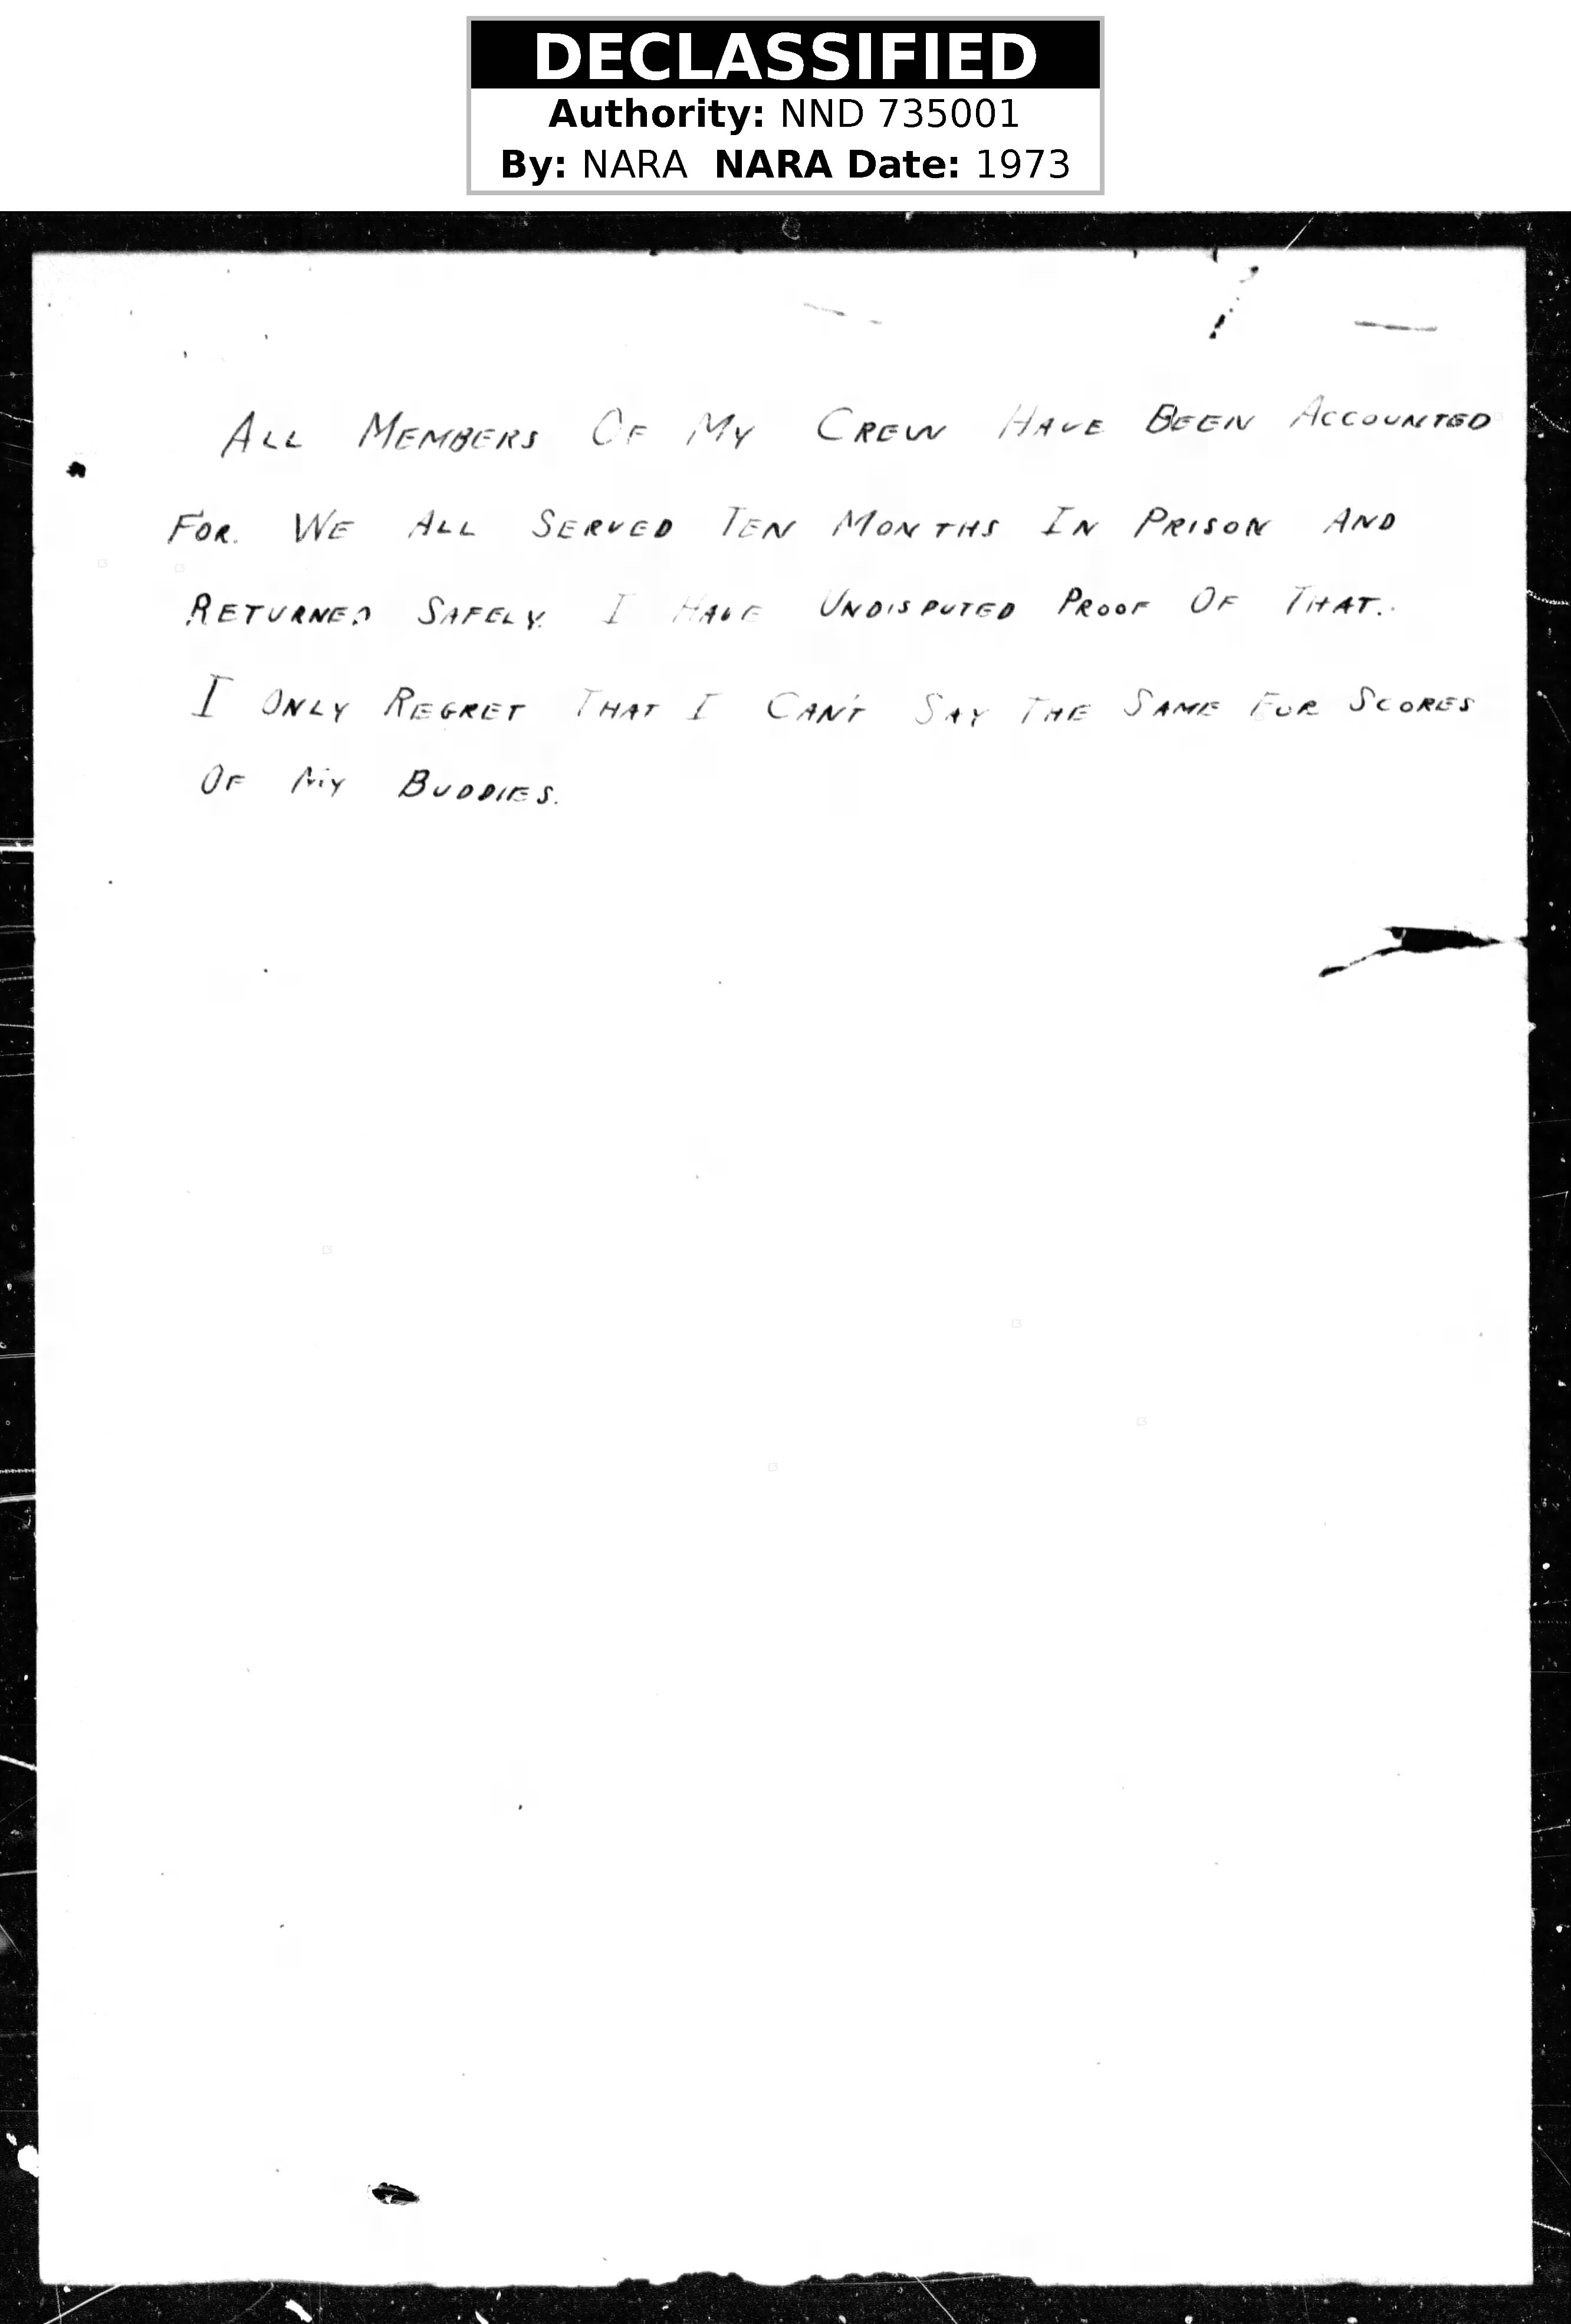 DECLASSIFIED
Authority: NND 735001
By: NARA NARA Date: 1973
ALL MEMBERS OF MY CREW HAVE BEEN ACCOUNTED
FOR. WE ALL SERVED TEN MONTHS IN PRISON AND
RETURNED SAFELY. I HAVE UNDISPUTED PROOF OF THAT.
I ONLY REGRET THAT I CAN'T SAY THE SAME FOR SCORES
OF MY BUDDIES.